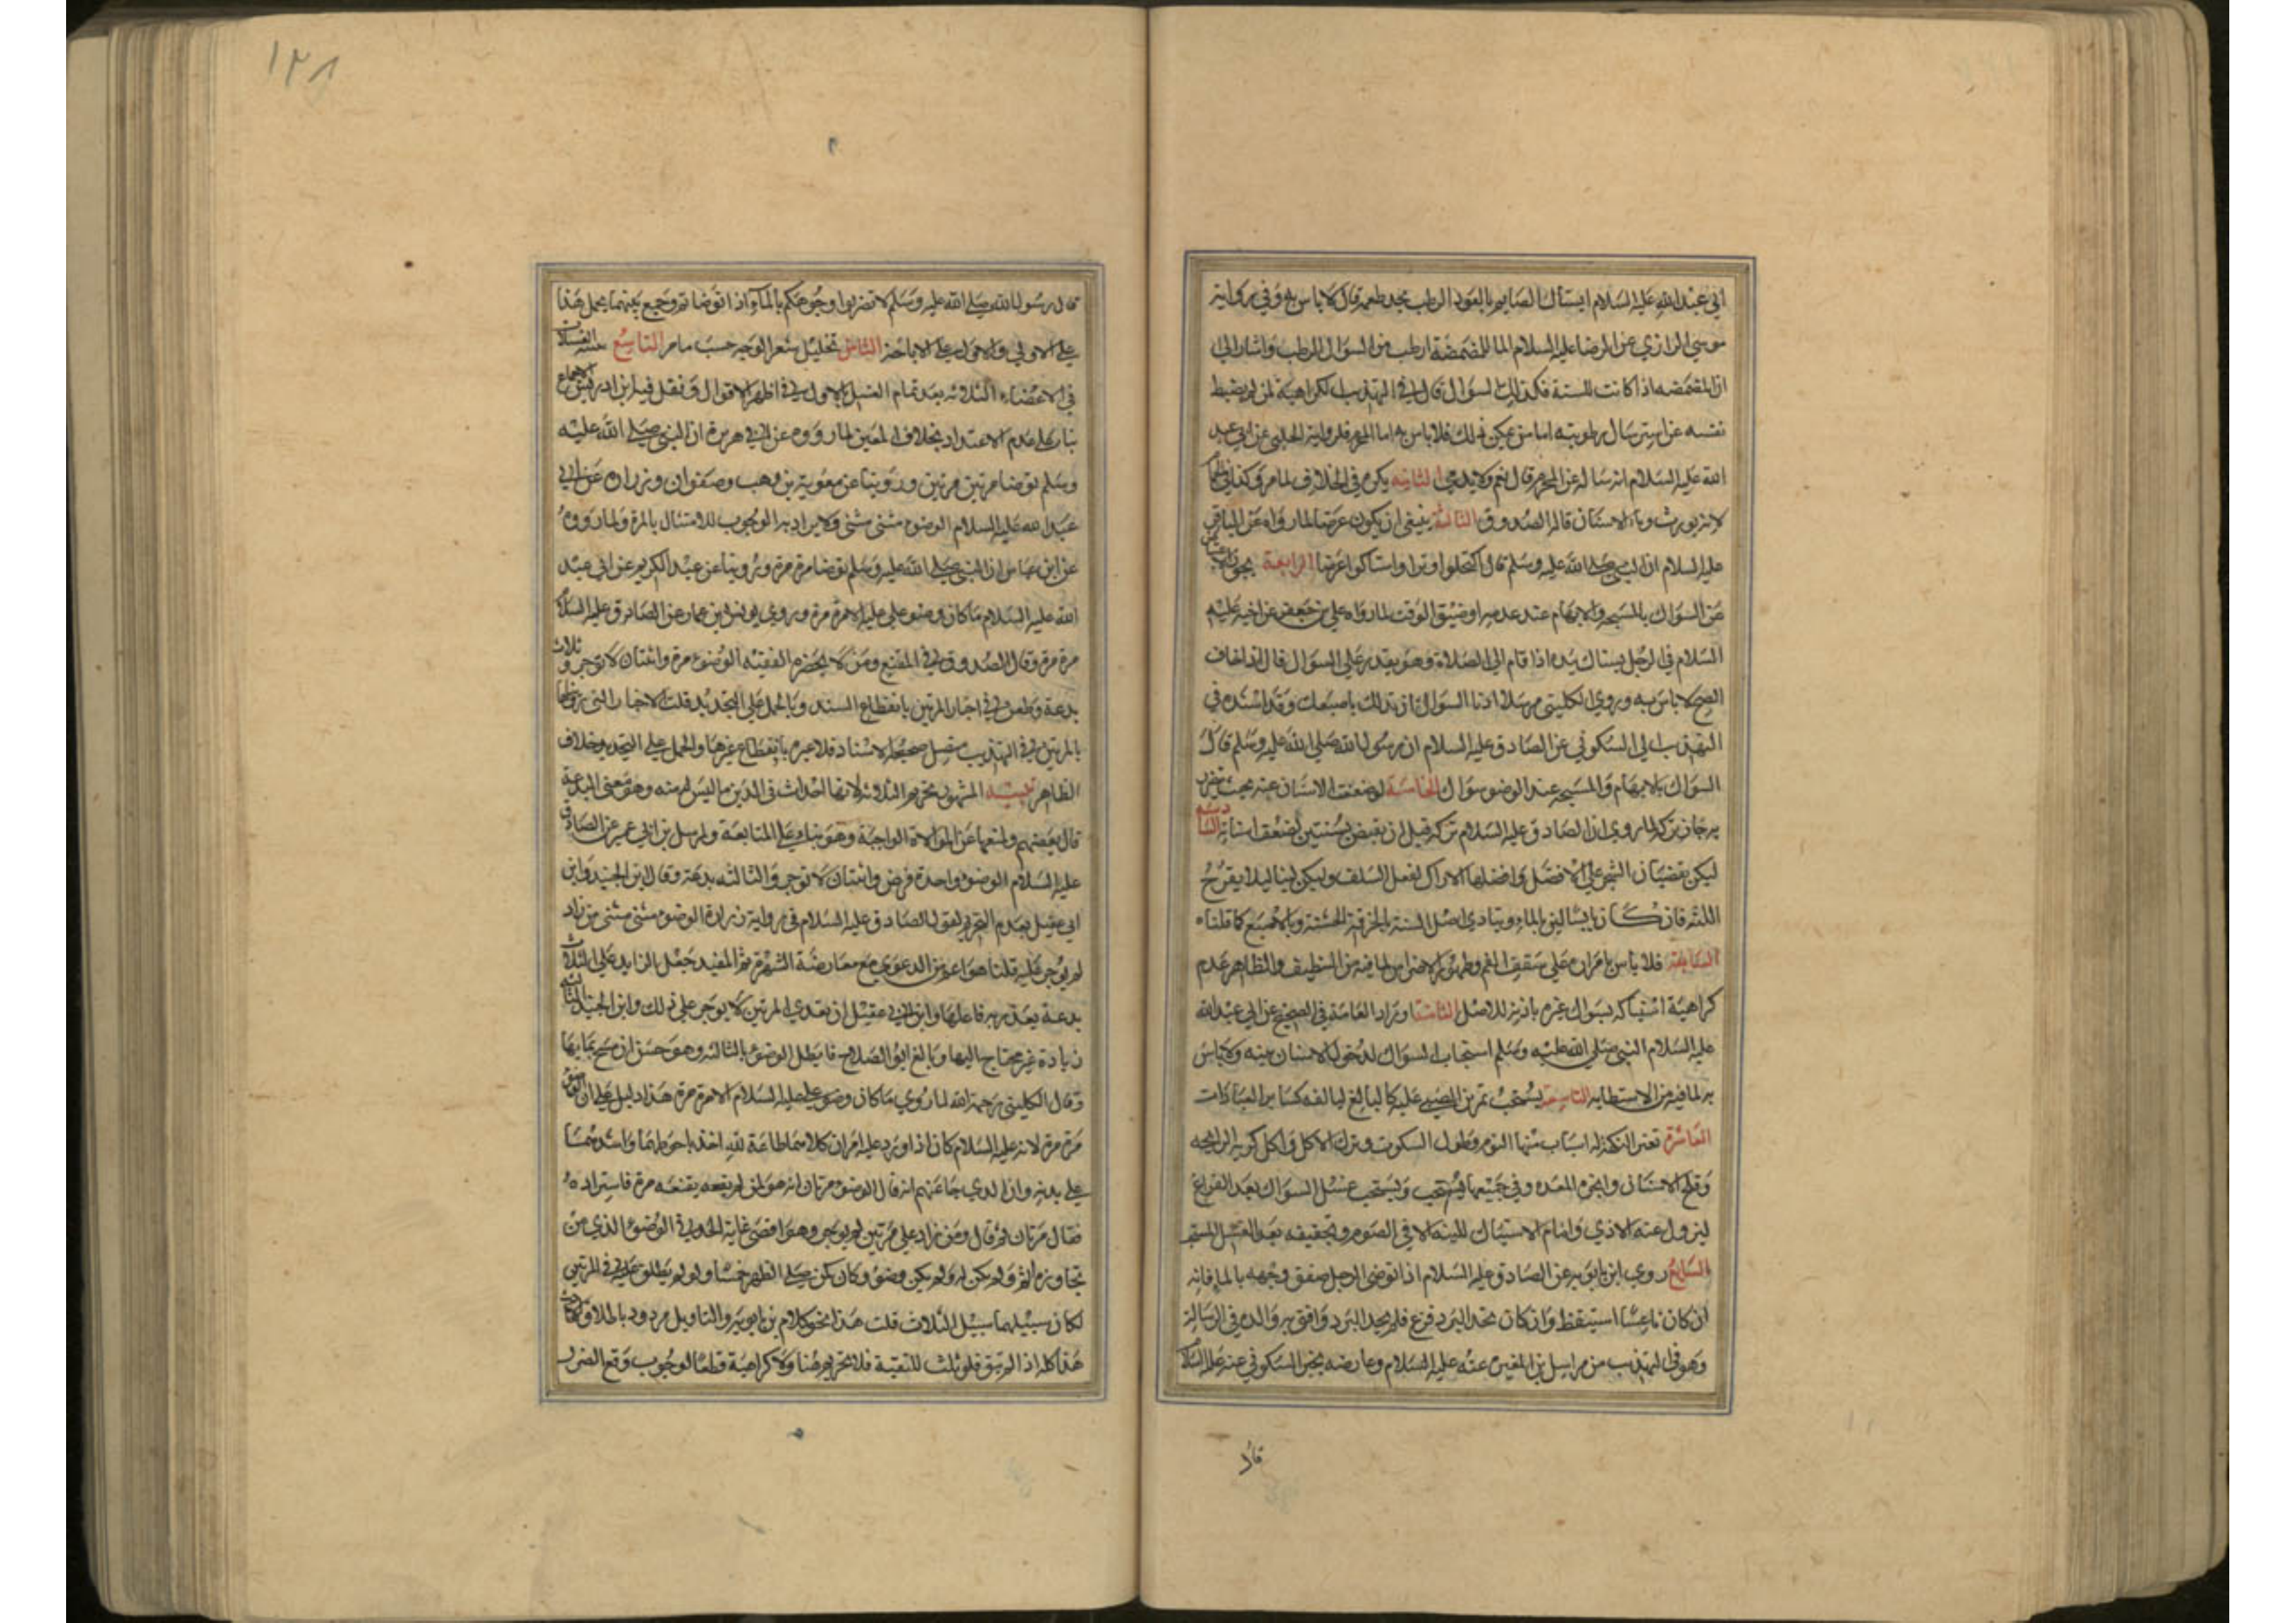 ابي عبد الله عليه السلام ايستاك الصايم بالعود الرطب يجد طعمه قال لا باس به وفي رواية
موسي الرازي عن الرضا عليه السلام الماء للمضمضة ارطب من السواك الرطب واشار الي
ان المضمضه اذا كانت للسنة فكذلك السواك قال في التهذيب الكراهية لمن لم يضبط
نفسه عن استرسال رطوبته اما من يمكن ذلك فلا باس به اما المحرم فلرواية الحلبي عن ابي عبد
الله عليه السلام انه ساله عن المحرم قال نعم ولا يدمي الثانيه يكره في الخلا ف لما مر وكذا في الحمام
لانه يورث وباء الاسنان قاله الصدوق الثالثة ينبغي ان يكون عرضا لما رواه عن الباقر
عليه السلام ان النبي صلى الله عليه وسلم قال اكتحلوا وترا واستاكوا عرضا الرابعة يجوز الاعتياض
عن السواك بالمسبحه والابهام عند عدمه او ضيق الوقت لما رواه علي بن جعفر عن اخيه عليه
السلام في الرجل يستاك بيده اذا قام الى الصلاة وهو يقدر على السواك قال اذا خاف
الصبح لا باس به وروي الكليني مرسلا ادنا السواك ان تدلك باصبعك وقد اسنده في
التهذيب الى السكوني عن الصادق عليه السلام ان رسول الله صلى الله عليه وسلم قال
السواك بالابهام والمسبحه عند الوضوء سواك الخامسة لو ضعفت الاسنان عنه بحيث يتضرر
به جاز تركه لما روي ان الصادق عليه السلام تركه قبل ان يقبض بسنتين لضعف اسنانه السادسة
ليكن بقضبان الشجر على الافضل وافضلها الاراك لفعل السلف وليكن لينا ليلا يقرح
اللثه فان كان يابسا لين بالماء ويتادى اصل السنة بالخرقة الخشنة وبالاصبع كما قلناه
السابعة فلا باس بامراره على سقف الفم وظهور الاضراس لما فيه من التنظيف والظاهر عدم
كراهية استياكه بسواك غيره باذنه للاصل الثامنة اوراد العامة في الصحيح عن ابي عبد الله
عليه السلام النبي صلى الله عليه وسلم استحباب السواك لدخول الاسنان منه ولا باس
به لما فيه من الاستطابه التاسعة يستحب تمرين الصبي عليه كالبالغ ليالفه كساير العبادات
العاشرة تغير النكهة له اسباب منها النوم وطول السكوت وترك الاكل واكل كريه الرايحه
وقلح الاسنان وابخرة المعده وفي جميعها يستحب ويستحب غسل السواك بعد الفراغ
ليزول عنه الاذي وانام الاستياك للينه الا في الصوم وتجفيفه بعد الغسل المستحب
السابع روي ابن بابويه عن الصادق عليه السلام اذا توضى الرجل صفق وجهه بالماء فانه
ان كان ناعسا استيقظ وان كان يجد البرد فزع فلم يجد البرد وافق به والده في الرسالة
وهو في التهذيب من مراسيل بن المغيرة عنه عليه السلام وعارضه بخبر السكوني عنه عليه السلام
قال
١٢٨
قال رسول الله صلى الله عليه وسلم لا تضربوا وجوهكم بالماء اذا توضاتم وجمع بينهما بحمل هذا
على الاولى والاول على الاباحة الثامن تخليل شعر الوجه حسب ما مر التاسع تثنيه الغسلات
في الاعضاء الثلاثه بعد تمام الغسل الاول في اظهر الاقوال ونقل فيه ابن ادريس الاجماع
بناء على عدم الاعتداد بخلاف المعين لما رووه عن ابي هريرة ان النبي صلى الله عليه
وسلم توضا مرتين مرتين وروينا عن معوية بن وهب وصفوان وزراره عن ابي
عبد الله عليه السلام الوضوء مثنى مثنى ولا يراد به الوجوب للامتثال بالمرة ولما رووه
عن ابن عباس ان النبي صلى الله عليه وسلم توضا مرة مرة وروينا عن عبد الكريم عن ابي عبد
الله عليه السلام ما كان وضوء علي عليه الا مرة مرة وروي يونس بن عمار عن الصادق عليه السلام
مرة مرة وقال الصدوق في المقنع ومن لا يحضره الفقيه الوضوء مرة واثنتان لا توجر وثلاث
بدعة وطعن في اخبار المرتين بانقطاع السند وبالحمل على التجديد قلت الاخبار التي رويناها
بالمرتين في التهذيب متصل صحيحة الاسناد فلا عبرة بانقطاع غيرها والحمل على التجديد خلاف
الظاهر تنبيه المشهور تحريم الثلاثه لانها احداث في الدين ما ليس منه وهو معنى البدعة
قال بعضهم ولمنعها عن الموالاة الواجبة وهو بناء على المتابعة ولمرسل بن ابي عمير عن الصادق
عليه السلام الوضوء واحدة فرض واثنتان لا توجر والثالثه بدعة وقال ابن الجنيد وابن
ابي عقيل بعدم التحريم لقول الصادق عليه السلام في رواية زرارة الوضوء مثنى مثنى من زاد
لم يوجر عليه قلنا هو اعم من الدعوي مع معارضة الشهرة ثم المفيد جعل الزايد على الثلاث
بدعة يعذر بها فاعلها وابن ابي عقيل ان تعدي المرتين لا يوجر على ذلك وابن الجنيد الثالثه
زيادة غير محتاج اليها وبالغ ابو الصلاح فابطل الوضوء بالثالثه وهو حسن ان مسح بمايها
وقال الكليني رحمة الله لما روي ما كان وضوء علي عليه السلام الا مرة مرة هذا دليل على ان الوضوء
مرة مرة لانه عليه السلام كان اذا ورد عليه امران كلاهما طاعة لله اخذ باحوطهما واشدهما
على بدنه وان الذي جاء عنهم انه قال الوضوء مرتان انه هو لمن لم يقنعه مرة فاستزاده
فقال مرتان ثم قال ومن زاد على مرتين لم يوجر وهو اقصى غاية الحد في الوضوء الذي من
تجاوزه اثم ولم يكن له وضوء وكان كمن صلى الظهر خمسا ولو لم يطلق عليه في المرتين
لكان سبيلهما سبيل الثلاث قلت هذا نحو كلام بن بابويه والتاويل مردود باطلاق
هذا كله اذا لم يتق فلو ثلث للتقية فلا تحريم هنا ولا كراهية قطعا لوجوب دفع الضرر